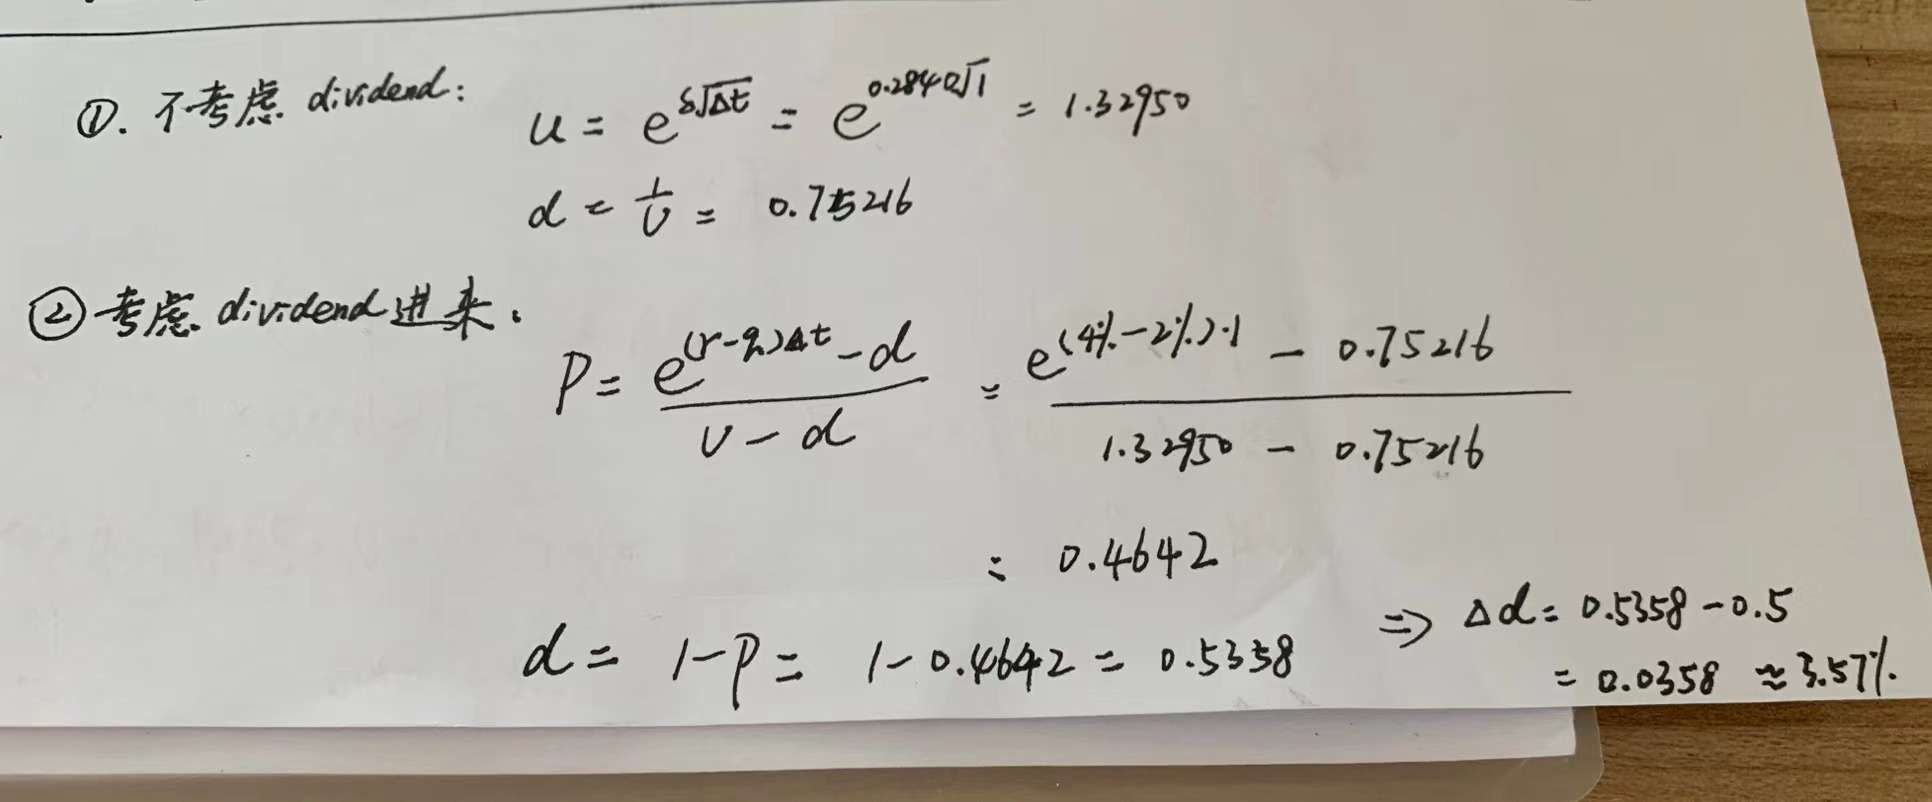 ①. 不考虑 dividend: u = e^{δ√Δt} = e^{0.2840√1} = 1.32950
d = 1/U = 0.75216
② 考虑 dividend 进来.
P = (e^{(r-q)Δt} - d)/(U - d) = (e^{(4%-2%)·1} - 0.75216)/(1.32950 - 0.75216)
= 0.4642
d = 1-P = 1-0.4642 = 0.5358 ⇒ Δd = 0.5358 - 0.5
= 0.0358 ≈ 3.57%.